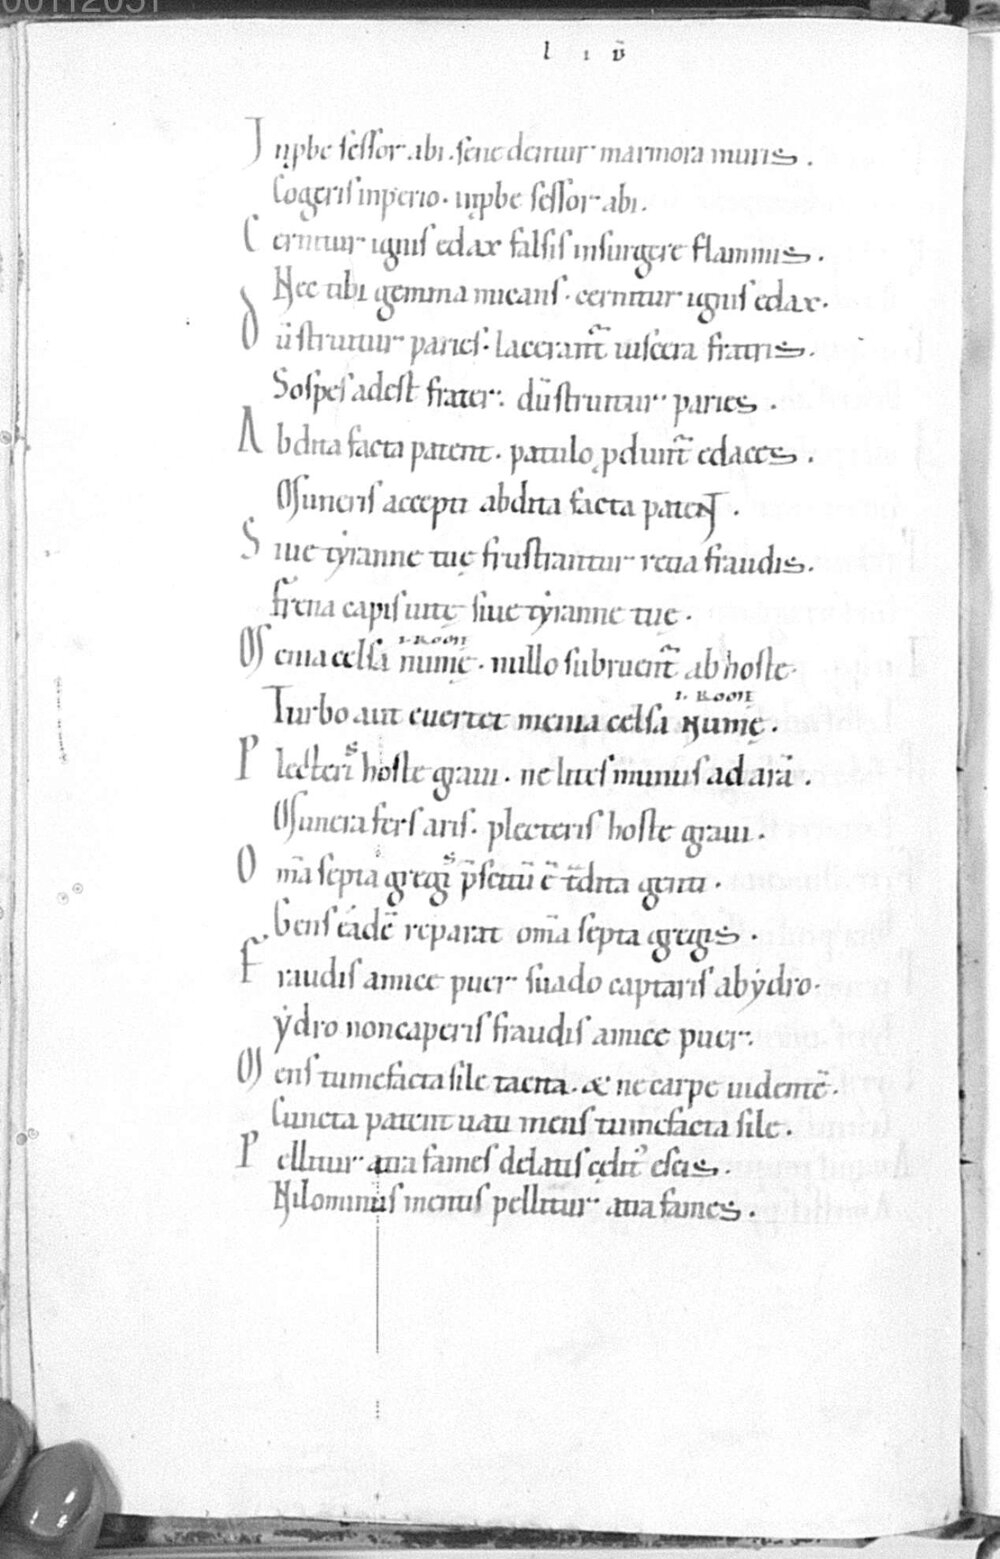 00112051
l i ū
Inp̱be sessor abi. sene dentur marmora muris.
Cogeris inperio. inp̱be sessor abi.
Cernitur ignis edax falsis insurgere flammis.
Nec tibi gemma micans. cernitur ignis edax.
Dūstruitur paries. lacerant̄ uiscera fratris.
Sospes adest frater. dūstruitur paries.
Abdita facta patent. patulo ꝓduint̄ edaces.
Muneris accepti abdita facta patent.
Siue tẏranne tuę frustrantur retia fraudis.
Frena capis uitę siue tẏranne tuę.
i. ROME
Menia celsa numę. nullo subruent̄ ab hoste.
i. ROOME
Turbo aut euertet menia celsa numę.
s
Plecteri hoste graui. ne lues munus ad arā.
Munera fers aris. plecteris hoste graui.
s
Om̄a septa gregi p̄scitū ē t̄dita genti.
Gens eadē reparat om̄a septa gregis.
Fraudis amice puer suado captaris ab ẏdro.
ẏdro non caperis fraudis amice puer.
Mens tumefacta sile tacita. & ne carpe uidentē.
Cuncta patent uati mens tumefacta sile.
Pellitur atra fames delatis cęlit᾽ escis.
Nilominus mentis pellitur atra fames.